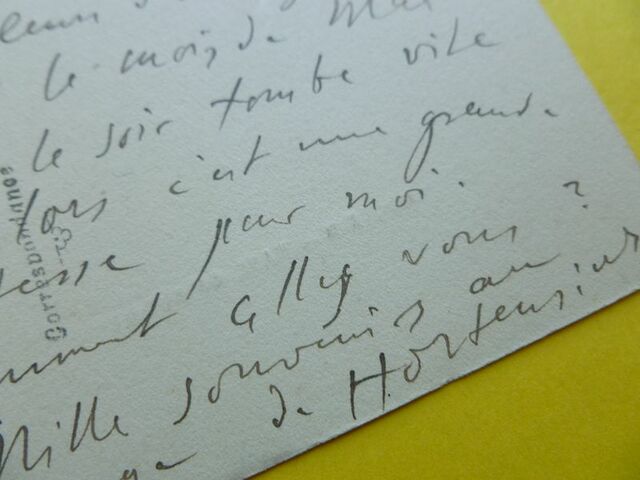 le mois de Mai
le soir tombe vite
lors c'est une grande
esse pour moi.
mment allez vous ?
Mille souvenirs au
ge de Hortensias
Correspondance